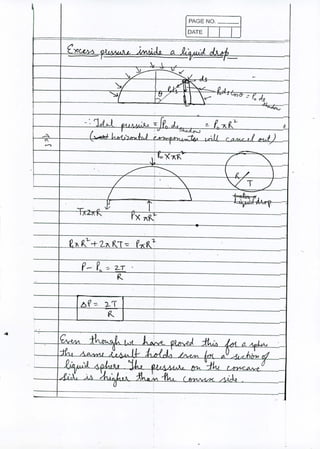 PAGE NO.
DATE
Excess pressure inside a liquid drop
ds
θ
P₀ds cosθ = P₀ ds shadow
∴ Total pressure = ∫P₀ ds shadow = P₀ πR²
(horizontal components will cancel out)
P₀ × πR²
R
T
T×2πR
P× πR²
Liquid drop
P₀πR² + 2πRT = PπR²
P - P₀ = 2T
R
ΔP = 2T
R
Even though we have proved this for a sphere
the same result holds even for a section of
liquid sphere. The pressure on the concave
side is higher than the convex side.